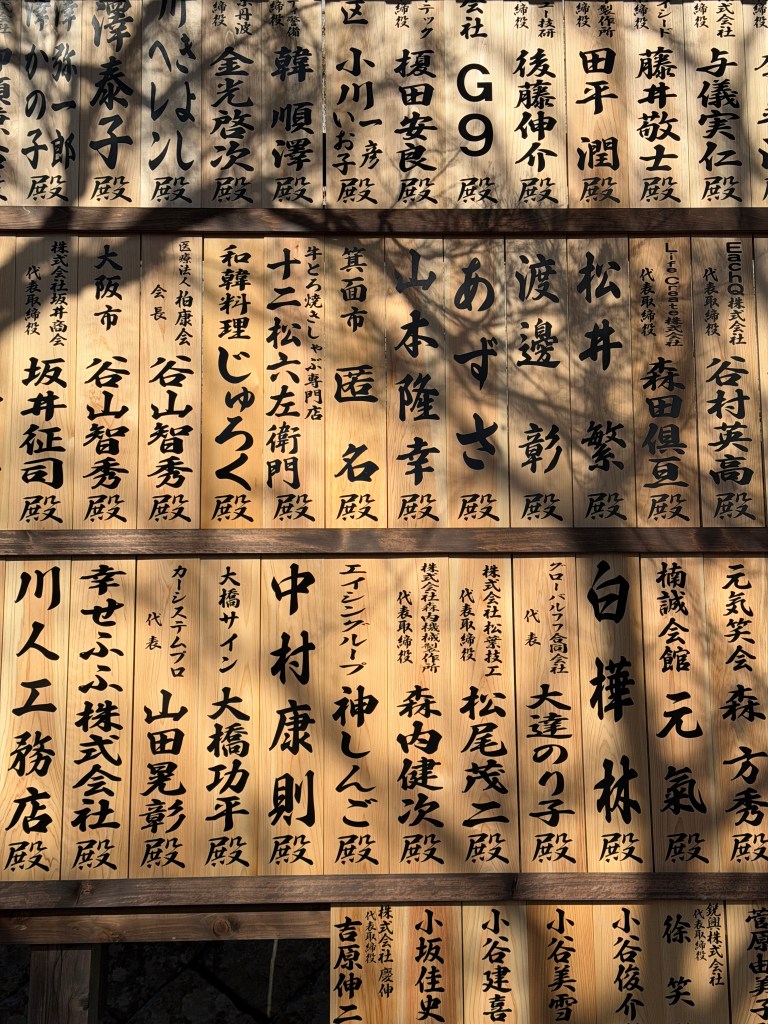 菅原由美子
鋭興株式会社
代表取締役
徐 笑
小谷俊介
小谷美雪
小谷建喜
小坂佳史
株式会社 慶伸
代表取締役
吉原伸二
元気笑会 森 方秀 殿
楠誠会館 元氣 殿
白樺林 殿
グローバルフフ合同会社
代表
大達のり子 殿
株式会社 松葉技工
代表取締役
松尾茂二 殿
株式会社森内機械製作所
代表取締役
森内健次 殿
エイシングループ 神しんご 殿
中村康則 殿
大橋サイン 大橋功平 殿
カーシステムプロ
代表
山田晃彰 殿
幸せふふ株式会社 殿
川人工務店 殿
EachQ株式会社
代表取締役
谷村英高 殿
Life Create株式会社
代表取締役
森田倶亘 殿
松井 繁 殿
渡邊 彰 殿
あずさ 殿
山本隆幸 殿
箕面市 匿名 殿
牛とろ焼きしゃぶ専門店
十二松六左衛門 殿
和韓料理 じゅろく 殿
医療法人 柏康会
会長
谷山智秀 殿
大阪市 谷山智秀 殿
株式会社坂井商会
代表取締役
坂井征司 殿
株式会社
取締役
与儀実仁 殿
取締役
藤井敬士 殿
製作所
取締役
田平 潤 殿
技研
取締役
後藤伸介 殿
会社 G9 殿
テック
取締役
榎田安良 殿
区 小川一彦
いお子 殿
警備
取締役
韓 順澤 殿
丹波
取締役
金光啓次 殿
川きよし
へレン 殿
澤泰子 殿
澤弥一郎
かの子 殿